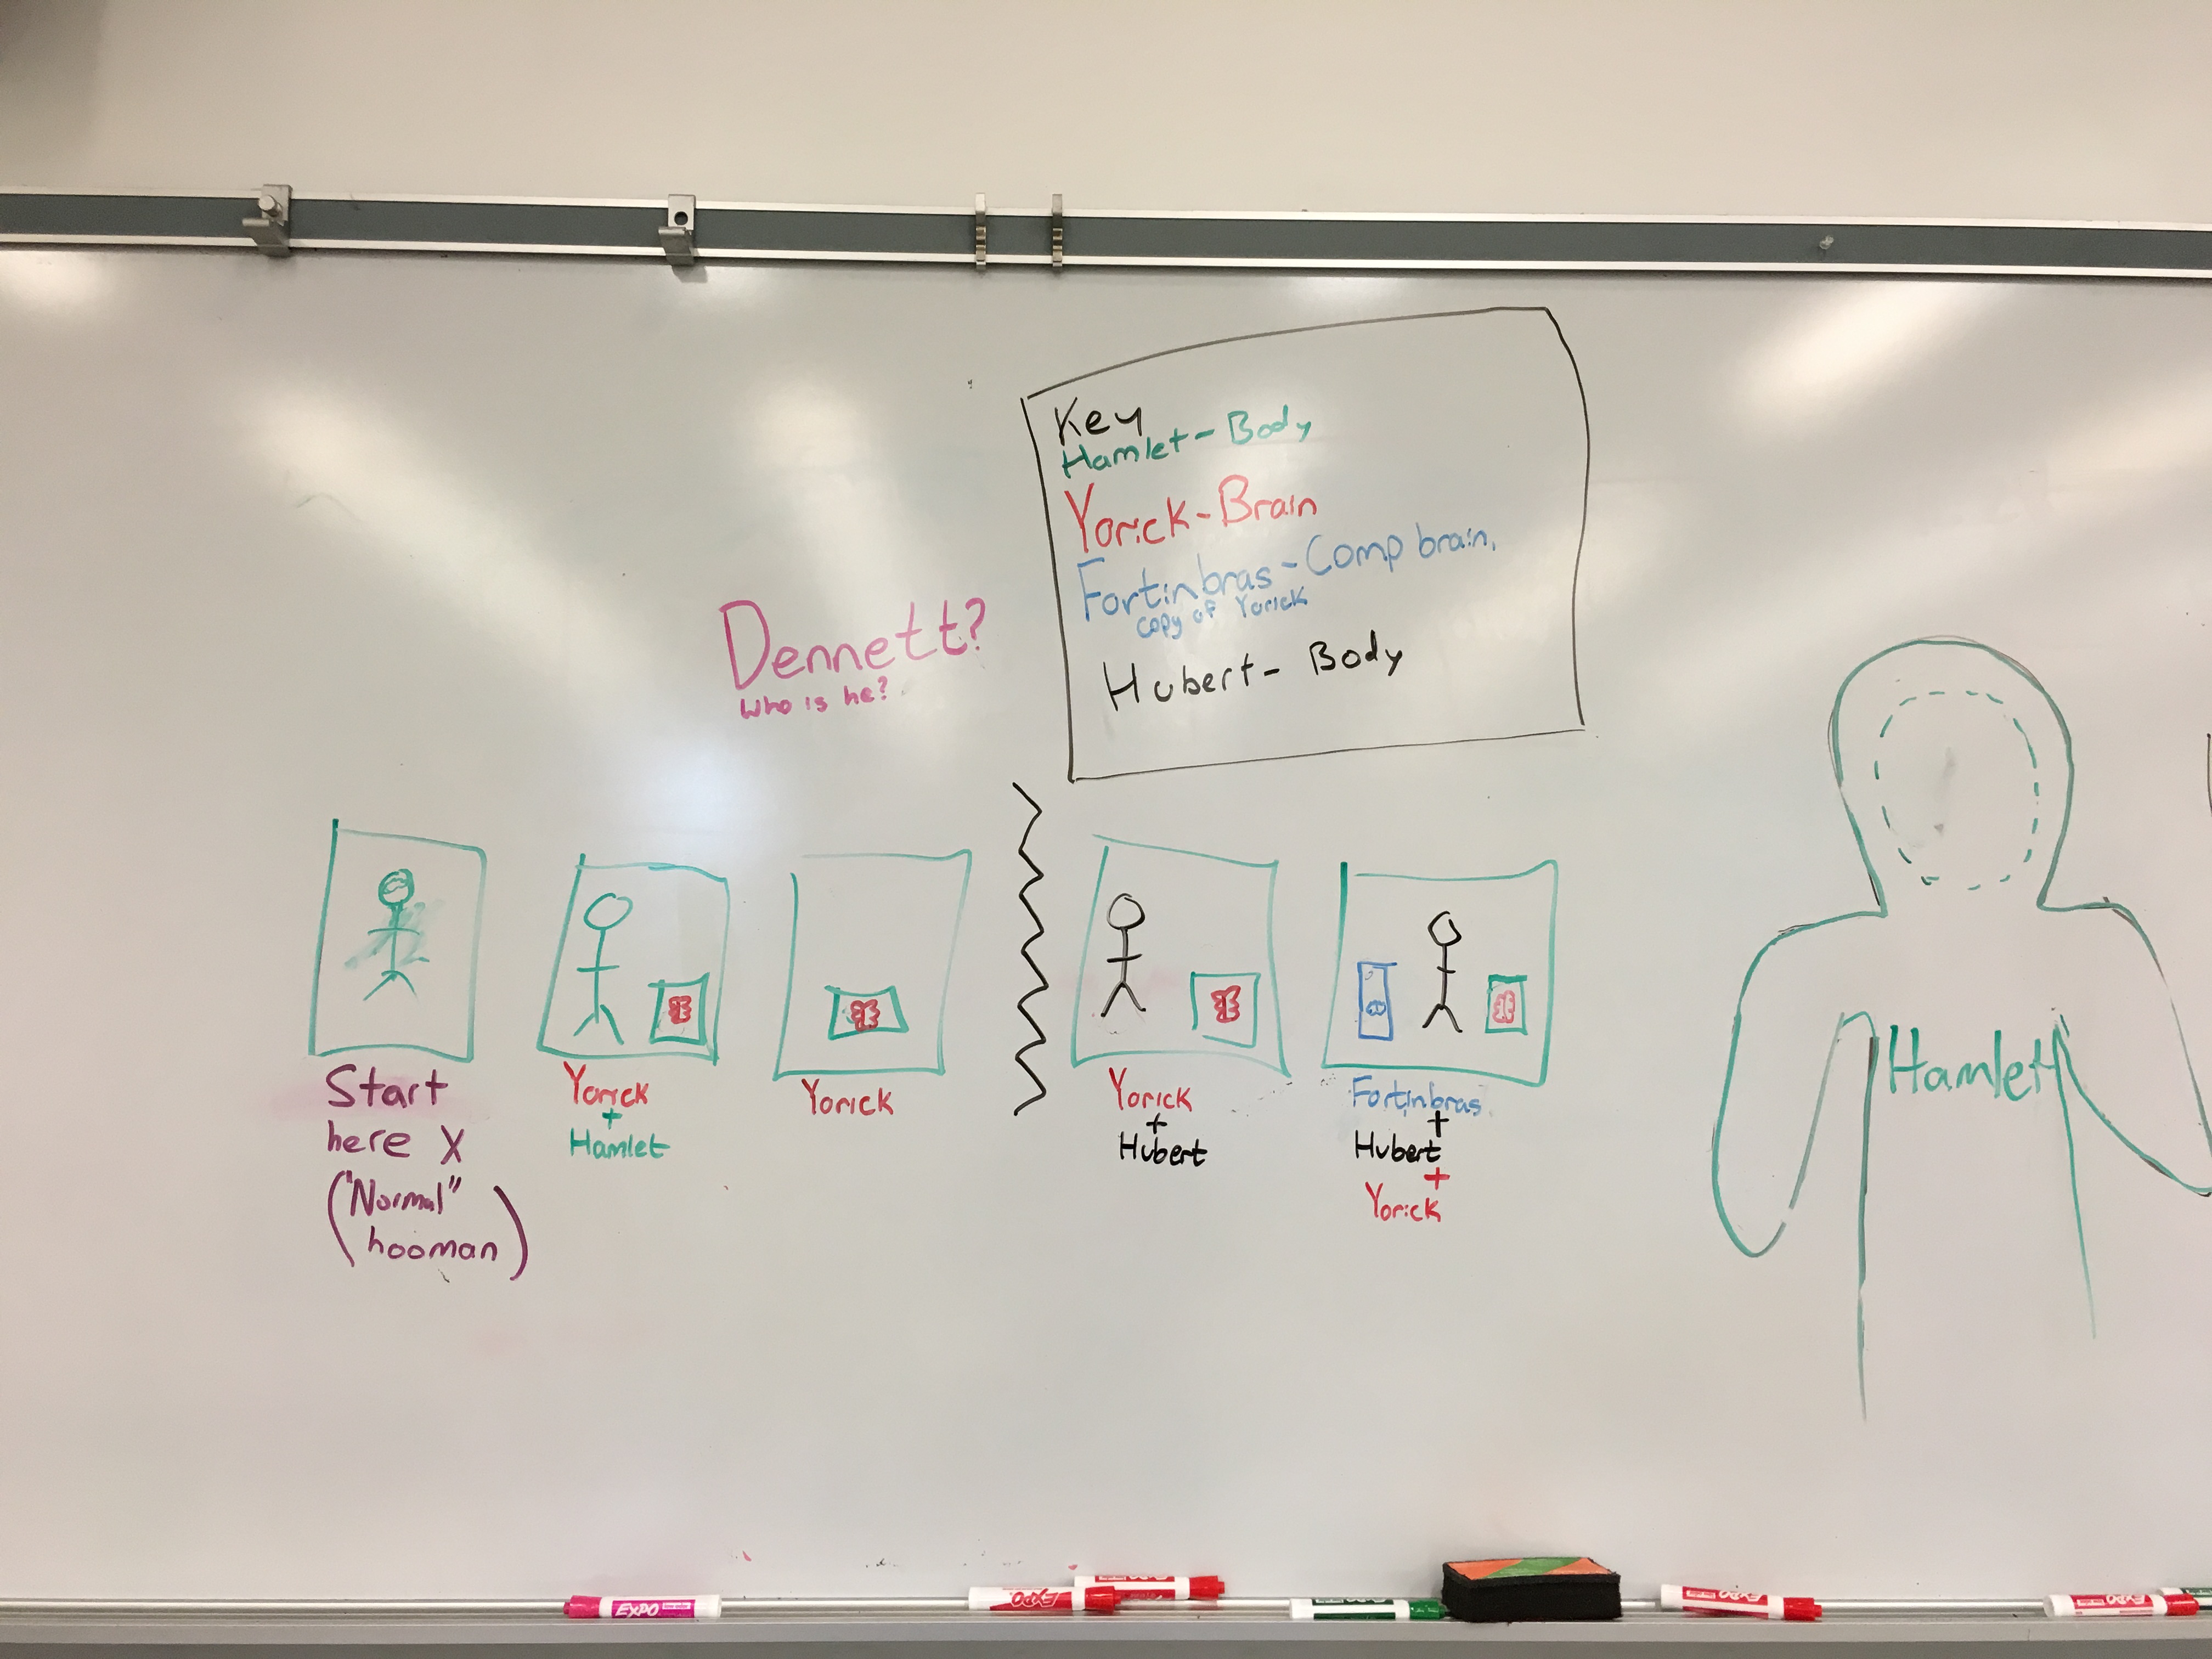 Key
Hamlet - Body
Yorick - Brain
Fortinbras - Comp brain,
copy of Yorick
Hubert - Body
Dennett?
Who is he?
Start
here X
("Normal"
hooman)
Yorick
+
Hamlet
Yorick
Yorick
+
Hubert
Fortinbras
+
Hubert
+
Yorick
Hamlet
EXPO
EXPO
EXPO
EXPO